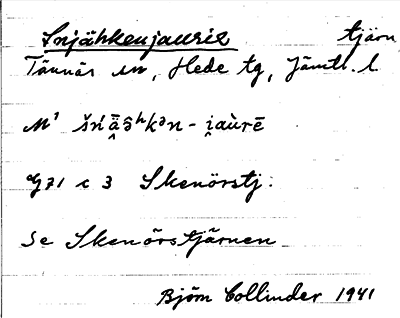 Snjähkenjaurie tjärn
Tännäs sn, Hede tg, Jämtl. l
M¹ šńǟ̯ə̑ʰkᵊn - i̯aùrē
G71 c 3 Skenörstj.
Se Skenörstjärnen
Björn Collinder 1941